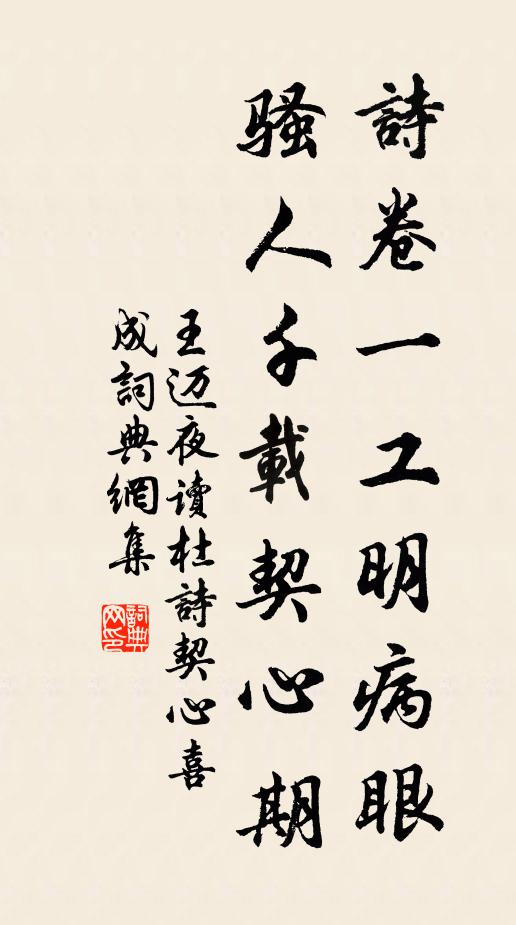 詩卷一工明病眼
騷人千載契心期
王迈夜讀杜詩契心喜
成詞典網集
詞典网印